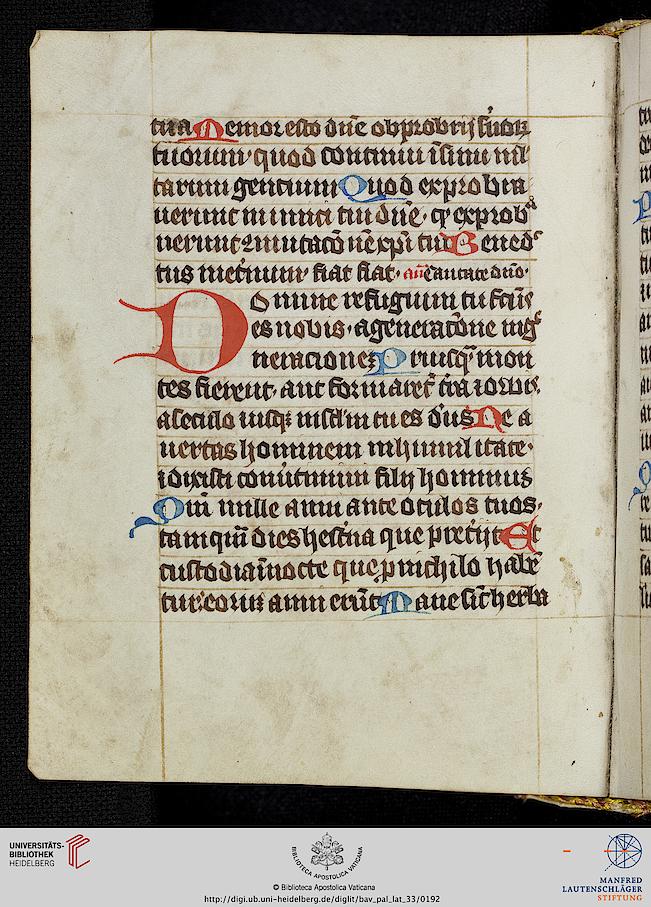 tua Memor esto dñe obprobrij ẜuoꝝ
tuorum· quod continui ĩ sinu ml
tarum gentium Quod exproḃra
uerunt inimici tui dñe· qꝫ exprobᵃ
uerunt ɔmutacõ nẽ xp̃i tui Bened̾
tus
fiat fiat· añ Cantate dño·
Domine refugium tu fc̃us
es nobis· a generatõne in g̾
neracioneꝫ Priusqᷓ mon
tes fierent· aut formaret̃ tr̃a ⁊ orbis·
a seculo ⁊ usqꝫ in sc̃l'm tu es d's Ne a
uertas hominem in humilitate·
⁊ dixisti conuertimini filij hominuꝫ
Qm̃ mille anni ante oculos tuos·
tamqᷓm dies hest̃na que pret̾ijt Et
custodia ĩ nocte que ꝓ nichilo habẽ
tur· eoruꝫ anni erũt Mane sic̃ herba
UNIVERSITÄTS-
BIBLIOTHEK
HEIDELBERG
BIBLIOTECA APOSTOLICA VATICANA
© Biblioteca Apostolica Vaticana
http://digi.ub.uni-heidelberg.de/diglit/bav_pal_lat_33/0192
MANFRED
LAUTENSCHLÄGER
STIFTUNG